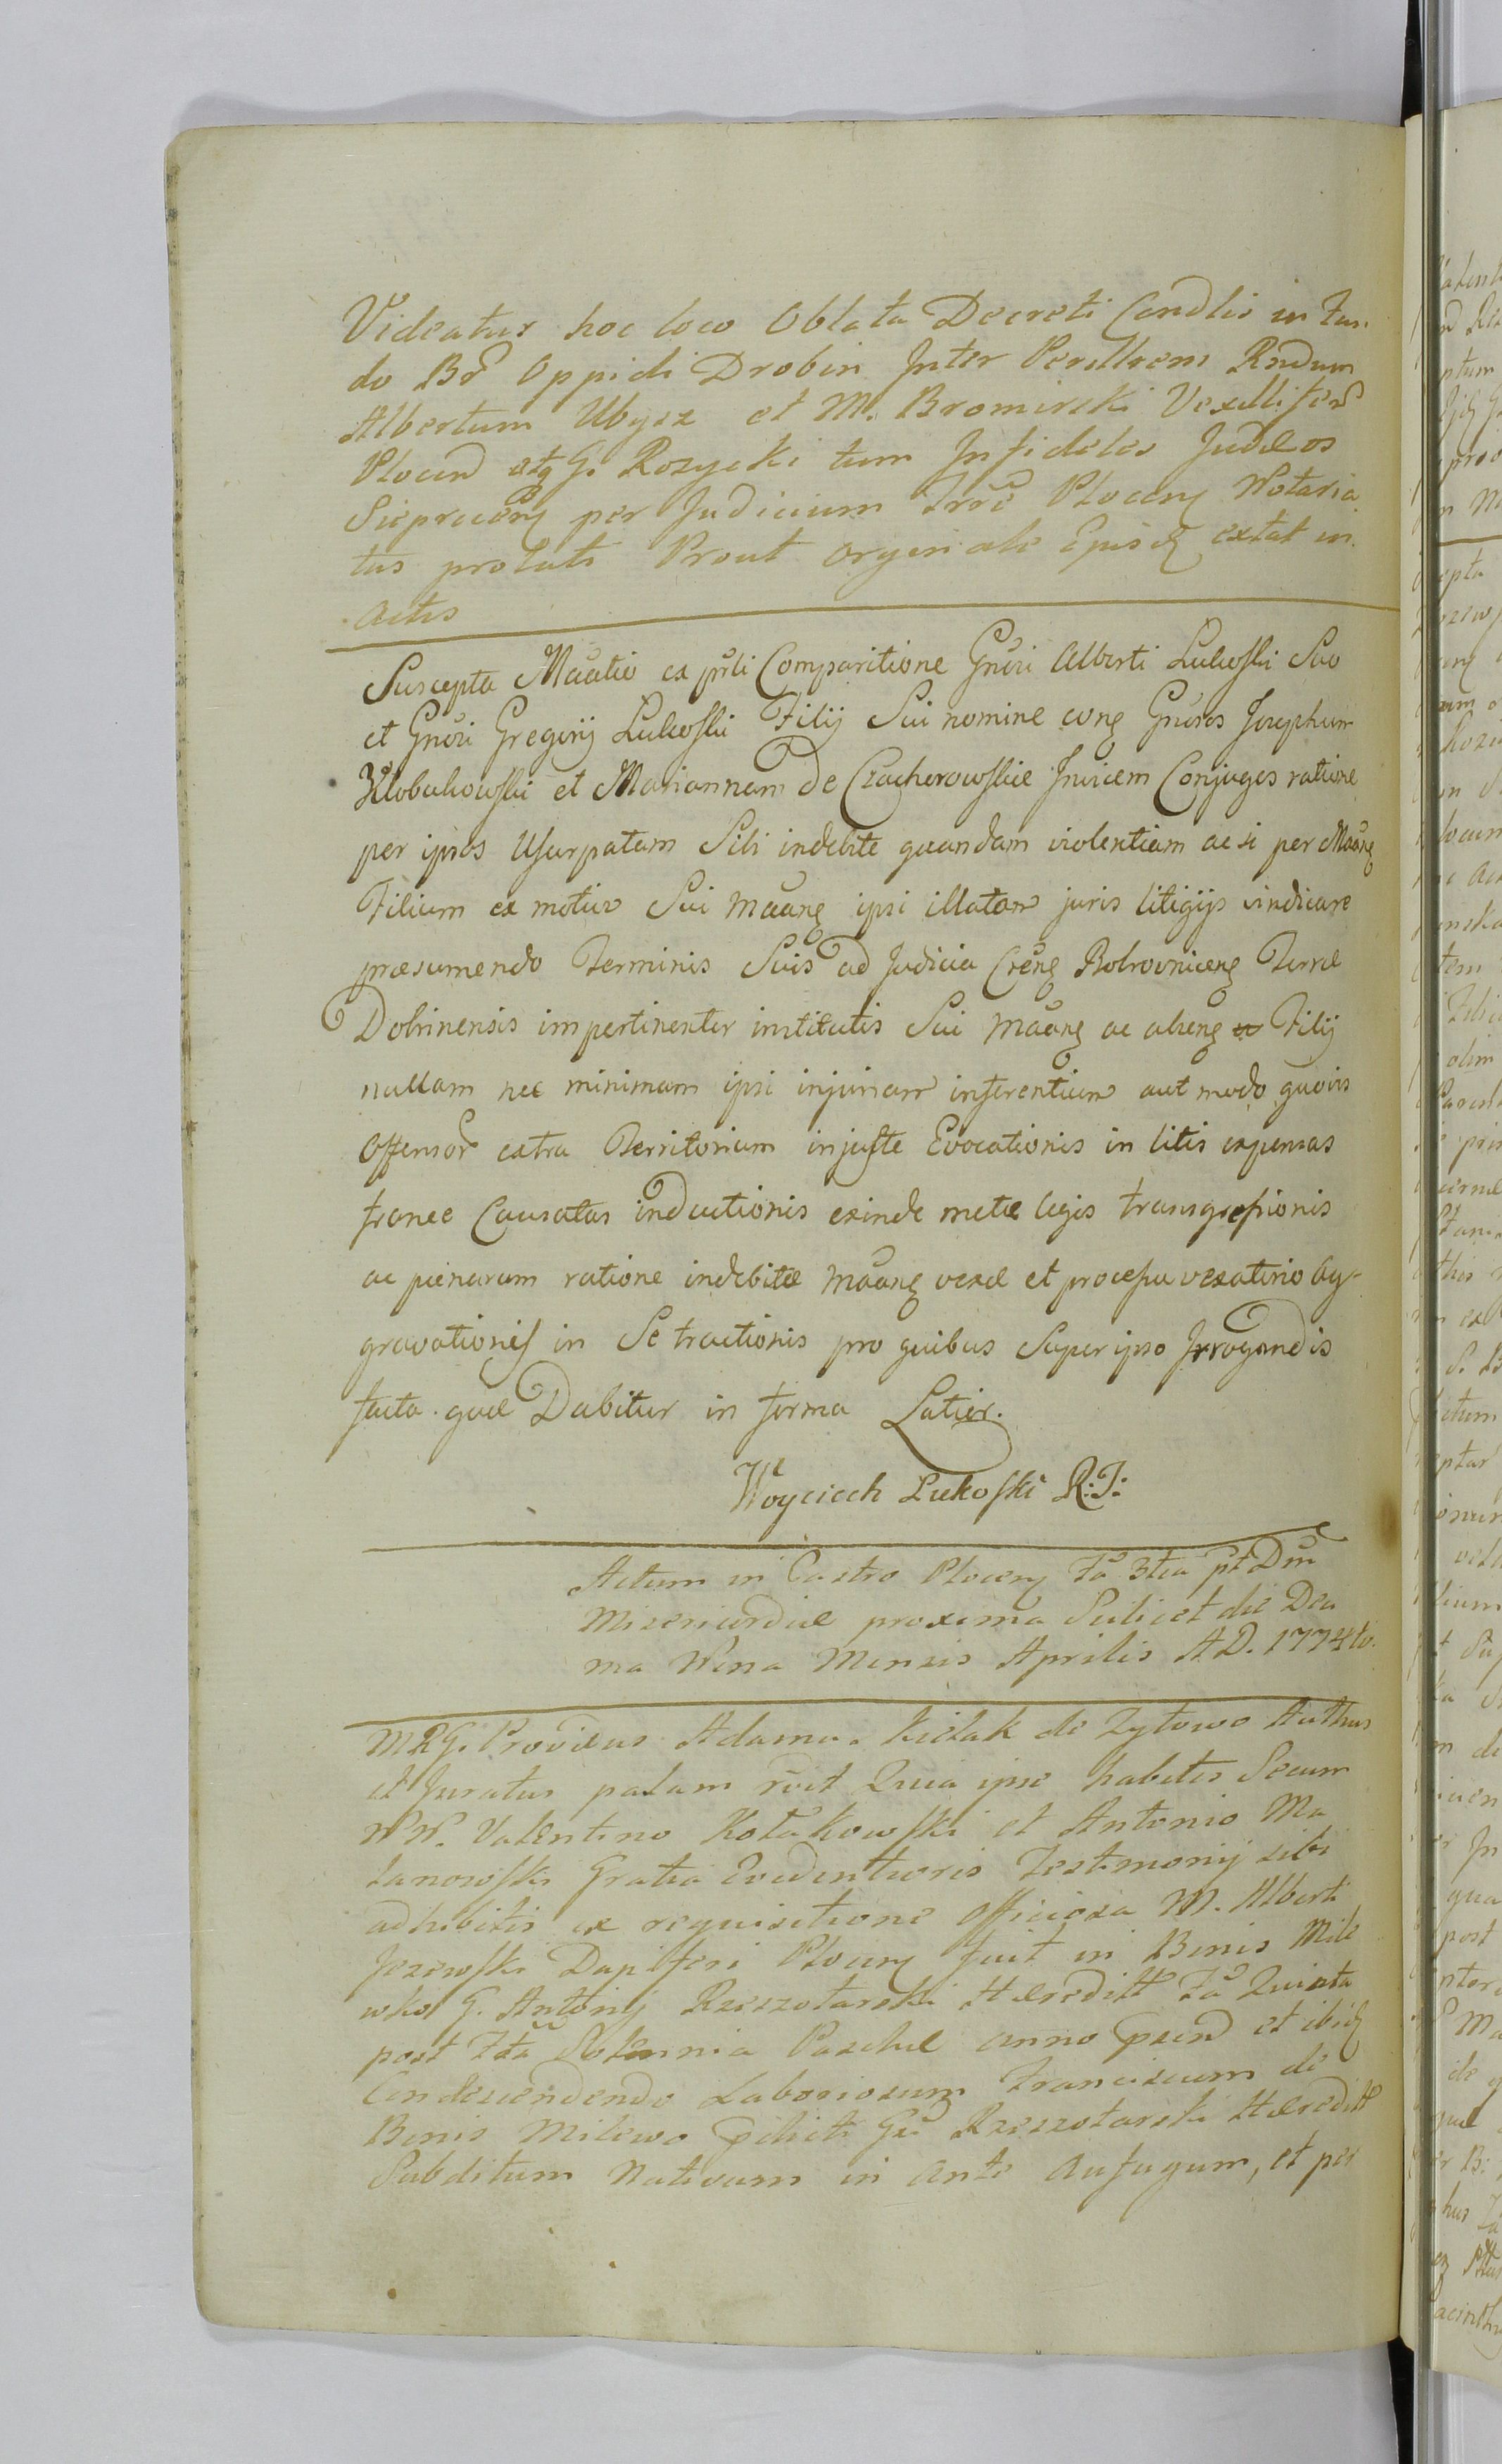 Videatur hoc loco Oblata Decreti Condlis in Fun
do Br Oppidi Drobin Inter Perillrem Rndum
Albertum Ubysz et M. Bromirski Vexillifer
Plocen atq G. Rozycki tum Infideles Judæos
Sieprcen per Judicium Trre Plocen Notaria
tus prolati Prout originale Ejusd extat in
actis
Suscepta Maãtio ex prli Comparitione Gnõri Alberti Lukoski Suo
et Gnõri Gregorij Lukoski Filij Sui nomine cong Gnõros Josephum
Klobukowski et Mariannam de Czacherowskie Invicem Conjuges ratione
per ipsos Usurpatam Sibi indebite quandam violentiam ac si per Maãng
Filium ex motivo Sui maãng ipsi illatam juris litigijs vindicare
præsumendo Terminis Suis ad Judicia Creng Bobrovniceng Terræ
Dobrinensis impertinenter institutis Sui maãng ac alieng Filij
nullam nec minimam ipsi injuriam inferentium aut modo quovis
Offensor extra Territorium injuste Evocationis in litis expensas
france Causatas inductionis exinde metæ legis transgressionis
ac pænarum ratione indebitæ maãng vexæ et processu vexatorio Ag-
gravationis in Se tractionis pro quibus Super ipso Irrogandis
facta. quæ Dabitur in forma Latior.
Woyciech Lukoski R:T:
Actum in Castro Plocen Fã 3tia pt Dm
Misericordiæ proxima Scilicet die Deci
ma Nona Mensis Aprilis AD. 1774to.
MRG. Providus Adamus Kielak de Zytowo Authus
et Juratus palam rõit Quia ipse habitis Secum
NN. Valentino Kołakowski et Antonio Ma
lanowski Gratia Evidentioris Testimonij sibi
adhibitis ex requisitione officiosa M. Alberti
Jezewski Dapiferi Plocen fuit in Bonis Mile
wko G. Antonij Rzeszotarski Hæreditt Fã Quinta
post Fta Solennia Paschæ anno præsn et ibid
Condescendendo Laboriosum Franciscum de
Bonis Milewo pdicti Gsi Rzeszotarski Hæreditt
Subditum Nativum in ante aufugum, et per